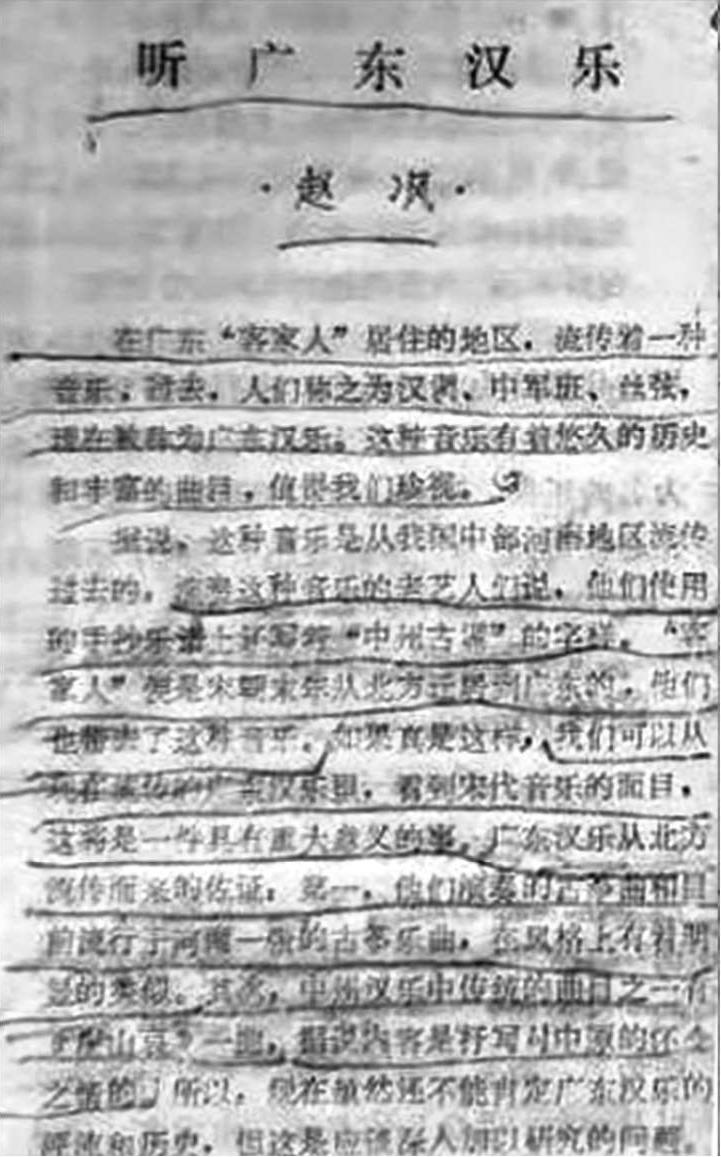 听广东汉乐
·赵沨·
在广东“客家人”居住的地区，流传着一种
音乐，过去，人们称之为汉调、中军班、丝弦，
现在被称为广东汉乐。这种音乐有着悠久的历史
和丰富的曲目，值得我们珍视。
据说，这种音乐是从我国中部河南地区流传
过去的。演奏这种音乐的老艺人们说，他们使用
的手抄乐谱上还写有“中州古调”的字样。“客
家人”是宋朝末年从北方迁居到广东的，他们
也带去了这种音乐。如果真是这样，我们可以从
现在流传的广东汉乐里，看到宋代音乐的面目，
这将是一件具有重大意义的事。广东汉乐从北方
流传而来的佐证：第一，他们演奏的古筝曲和目
前流行于河南一带的古筝乐曲，在风格上有着明
显的类似。其次，中州汉乐中传统的曲目之一有
山 一曲，据说内容是抒写对中原的怀念
之情的。所以，现在虽然还不能肯定广东汉乐的
源流和历史，但这是应该深入加以研究的问题。